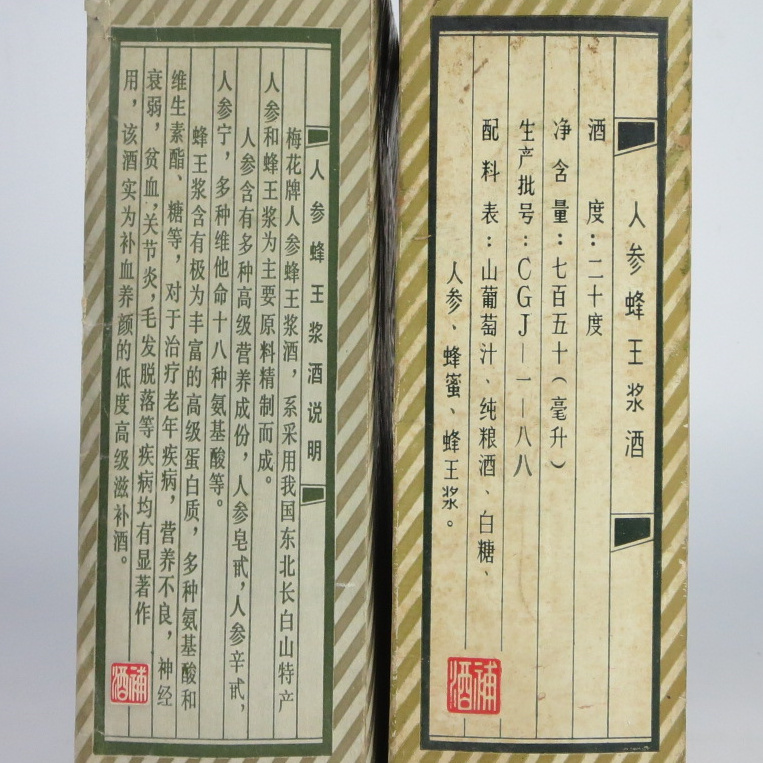 人参蜂王浆酒说明
梅花牌人参蜂王浆酒，系采用我国东北长白山特产
人参和蜂王浆为主要原料精制而成。
人参含有多种高级营养成份，人参皂甙，人参辛甙，
人参宁，多种维他命十八种氨基酸等。
蜂王浆含有极为丰富的高级蛋白质，多种氨基酸和
维生素酯、糖等，对于治疗老年疾病，营养不良，神经
衰弱，贫血，关节炎，毛发脱落等疾病均有显著作
用，该酒实为补血养颜的低度高级滋补酒。
补酒
人参蜂王浆酒
酒度：二十度
净含量：七百五十（毫升）
生产批号：CGJ—一—八八
配料表：山葡萄汁、纯粮酒、白糖、
人参、蜂蜜、蜂王浆。
补酒